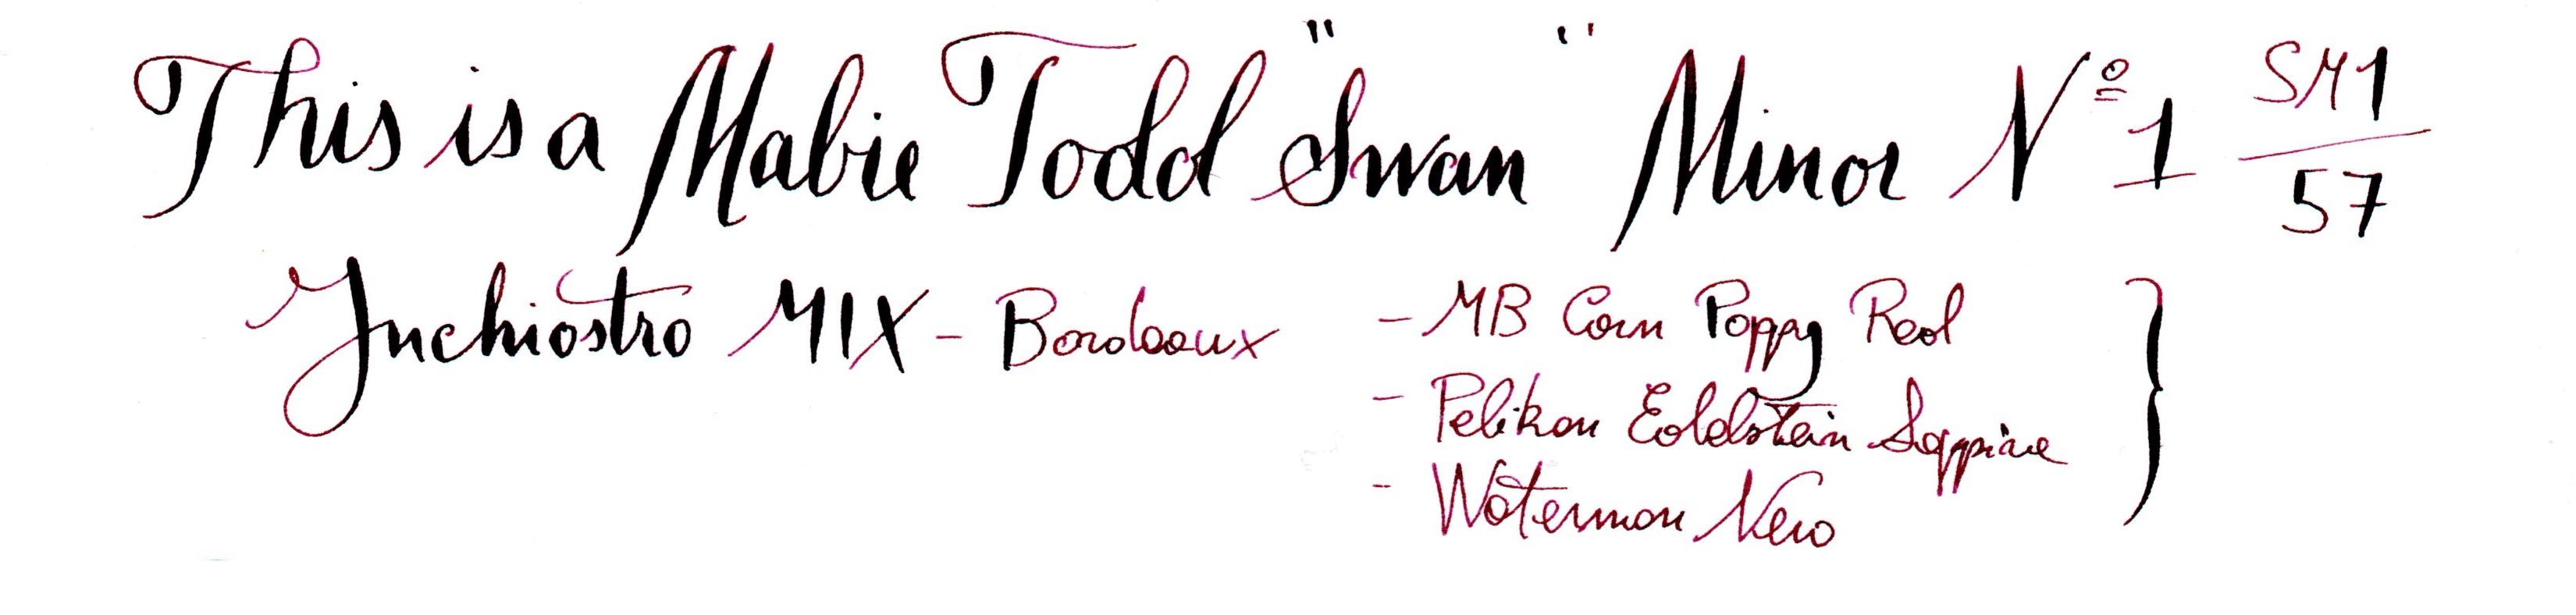 This is a Mabie Todd "Swan" Minor Nº 1 SM1/57
Inchiostro MIX - Bordeaux
- MB Corn Poppy Red
- Pelikan Edelstein Sapphire
- Waterman Nero